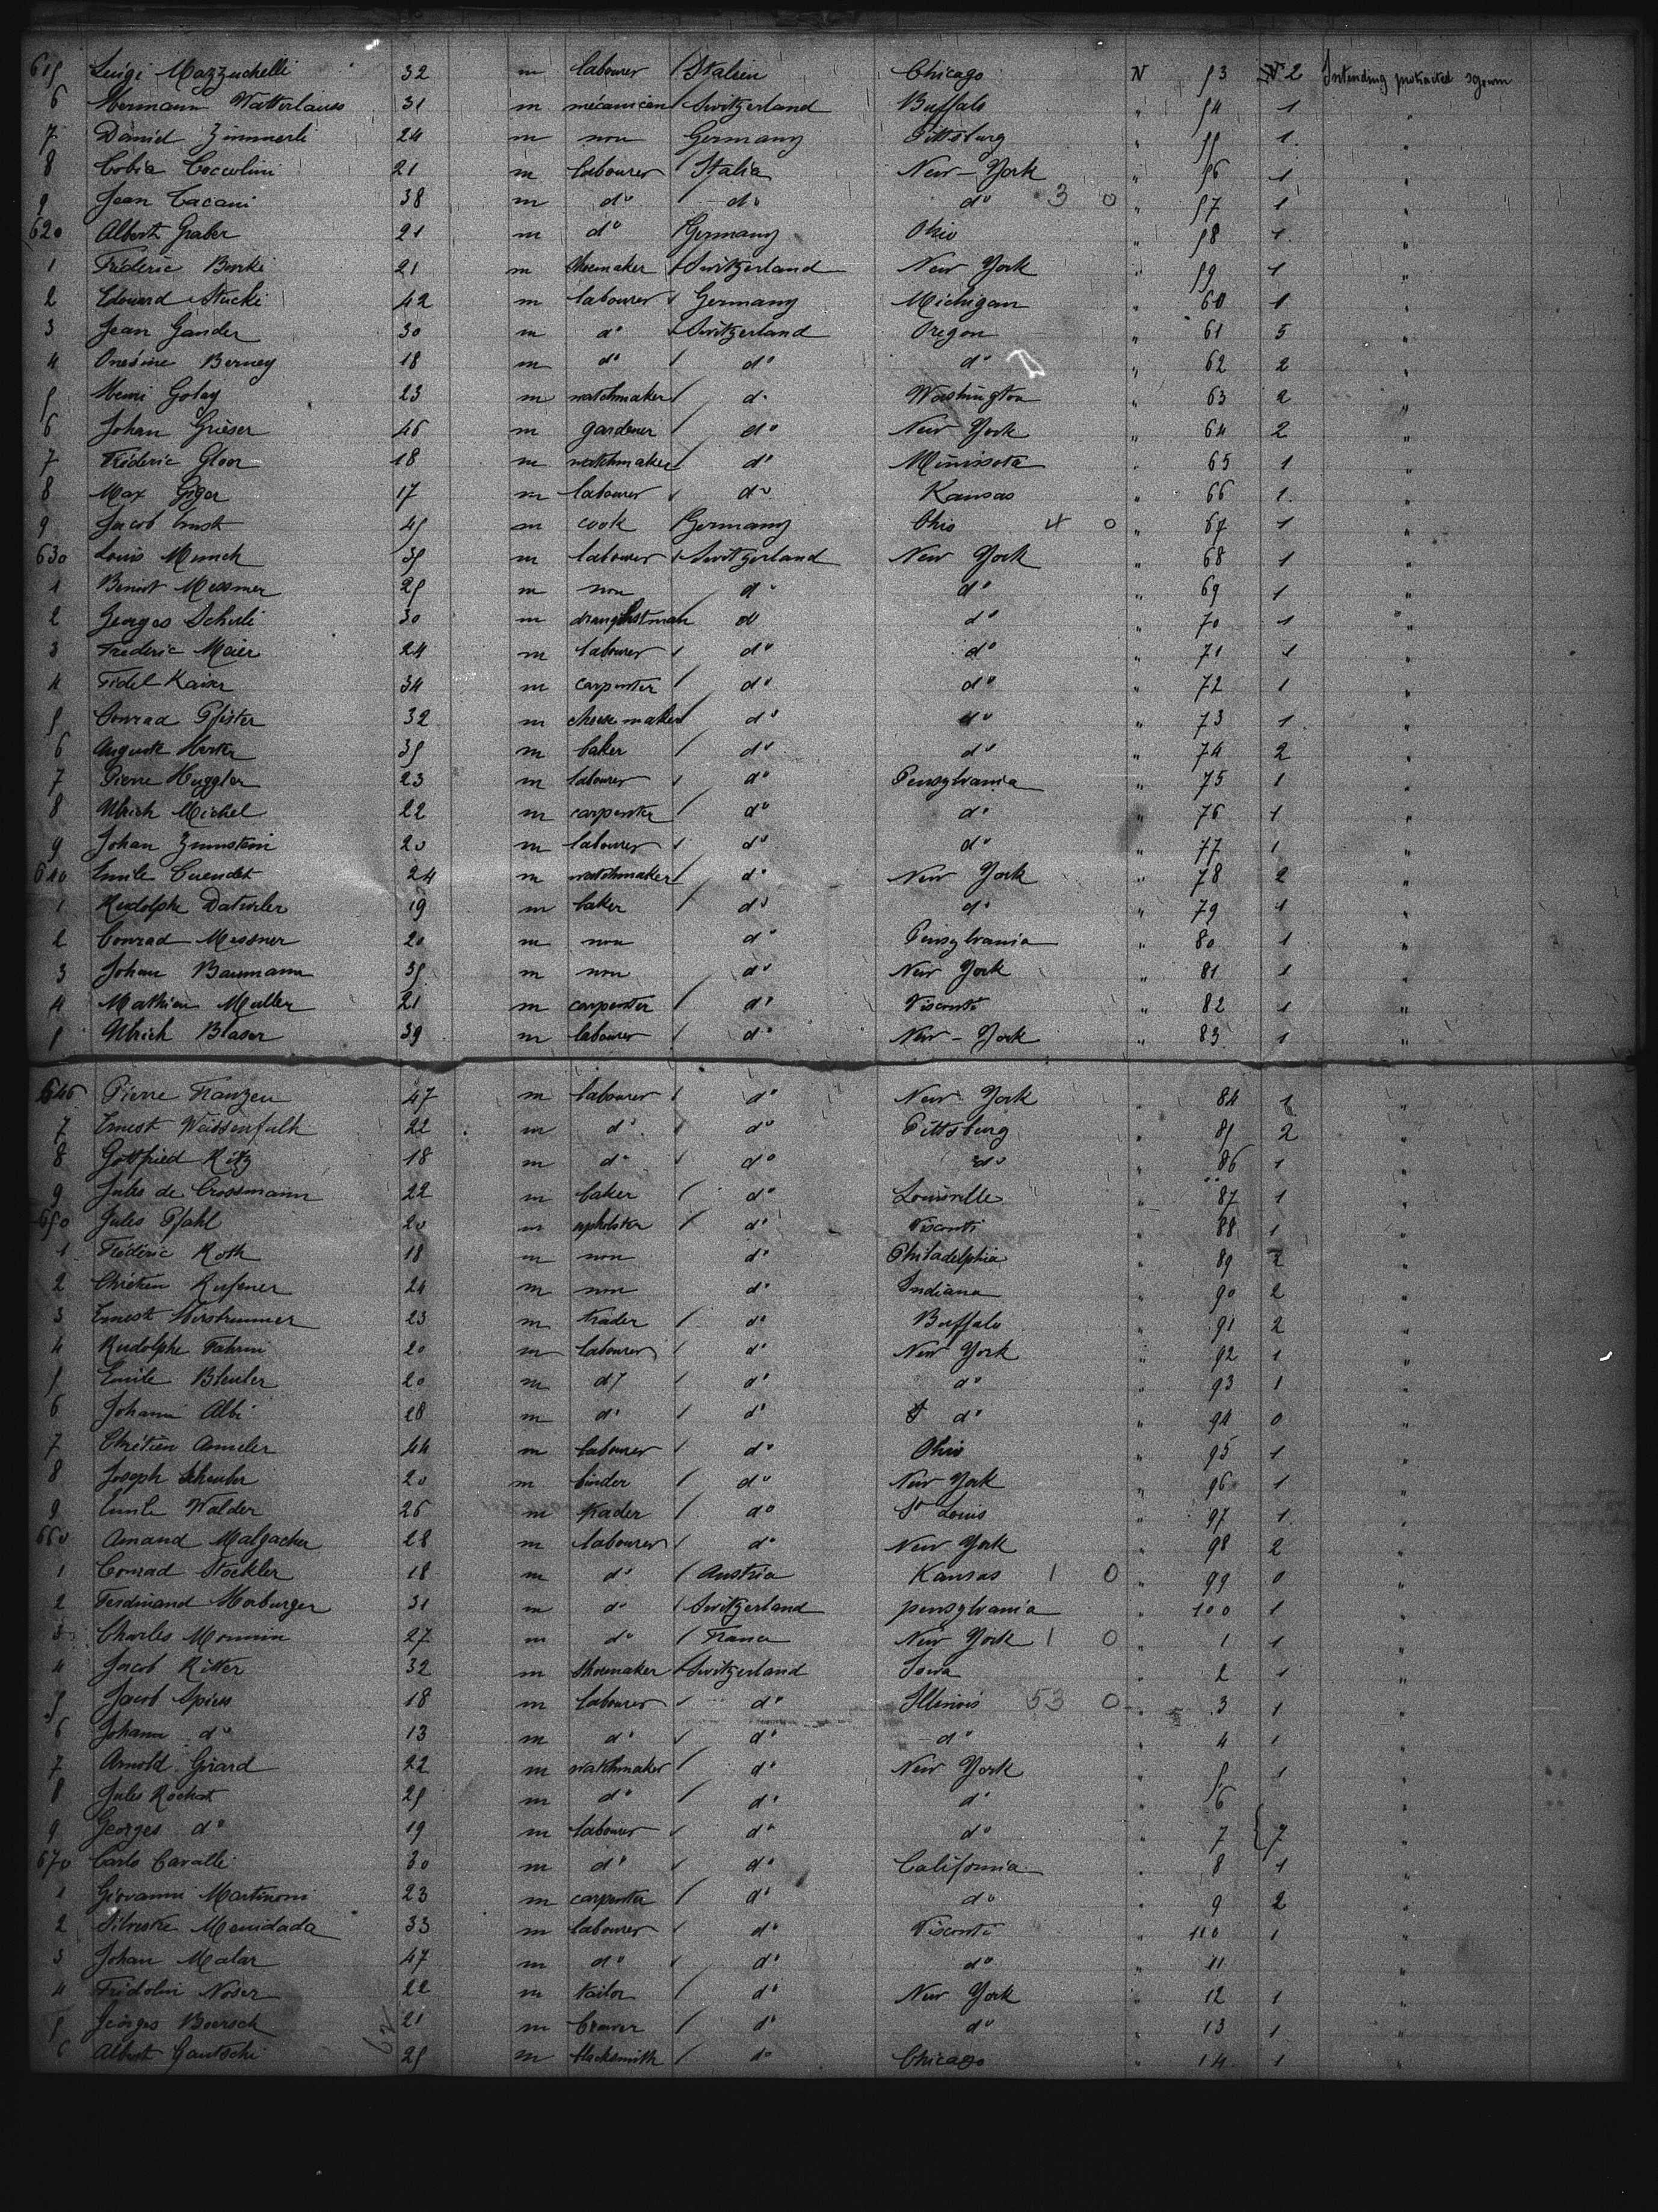 615 Luigi Mazzuchelli 32 m labourer Italien Chicago N 53 N 2 Intending protracted sojourn
6 Hermann 31 m mécanicien Switzerland Buffalo " 54 1 "
7 Daniel Zimmerli 24 m non Germany Pittsburg " 55 1 "
8 Tobia Coccolini 21 m labourer Italia New-York " 56 1 "
9 Jean Cacani 38 m do do do 3 0 " 57 1 "
620 Albert Graber 21 m do Germany Ohio " 58 1 "
1 Fréderic Burki 21 m shoemaker Switzerland New York " 59 1 "
2 Edouard Stucki 42 m labourer Germany Michigan " 60 1 "
3 Jean Gander 30 m do Switzerland Oregon " 61 5 "
4 Onésime Berney 18 m do do do " 62 2 "
5 Henri Golay 23 m watchmaker do Washington " 63 2 "
6 Johan Grieser 46 m gardener do New York " 64 2 "
7 Fréderic Gloor 18 m watchmaker do Minissota " 65 1 "
8 Max Giger 17 m labourer do Kansas " 66 1 "
9 Jacob 45 m cook Germany Ohio 4 0 " 67 1 "
630 Louis Munch 35 m labourer Switzerland New York " 68 1 "
1 Benoit Messmer 25 m non do do " 69 1 "
2 Georges Scherli 30 m draughstman do do " 70 1 "
3 Fréderic Maier 24 m labourer do do " 71 1 "
4 Fidel Kaiser 34 m carpenter do do " 72 1 "
5 Conrad Pfister 32 m cheese maker do do " 73 1 "
6 Auguste Herter 35 m baker do do " 74 2 "
7 Pierre Huggler 23 m labourer do Pensylvania " 75 1 "
8 Ulrich Michel 22 m carpenter do do " 76 1 "
9 Johan Zumstein 20 m labourer do do " 77 1 "
640 Emile Cuendet 24 m watchmaker do New York " 78 2 "
1 Rudolphe Datwiler 19 m baker do do " 79 1 "
2 Conrad Messner 20 m non do Pensylvania " 80 1 "
3 Johan Baumann 35 m non do New York " 81 1 "
4 Mathieu Muller 21 m carpenter do Visconti " 82 1 "
5 Ulrich Blaser 39 m labourer do New-York " 83 1 "
646 Pierre Franzen 47 m labourer do New York " 84 1 "
7 Ernest Weissenfulh 22 m do do Pittsburg " 85 2 "
8 Gottfried Ritz 18 m do do do " 86 1 "
9 Jules de Crossmann 22 m baker do Louisville " 87 1 "
650 Jules Pfahl 20 m upholster do Visconti " 88 1 "
1 Fréderic Roth 18 m non do Philadelphia " 89 2 "
2 Chrétien Rufener 24 m non do Indiana " 90 2 "
3 Ernest Hirsbrunner 23 m trader do Buffalo " 91 2 "
4 Rudolphe Fahrni 20 m labourer do New York " 92 1 "
5 Emile Bleuler 20 m do do do " 93 1 "
6 Johann Albi 28 m do do do " 94 0 "
7 Chrétien Anneler 44 m labourer do Ohio " 95 1 "
8 Joseph Scheuber 20 m binder do New York " 96 1 "
9 Emile Walder 26 m trader do St Louis " 97 1 "
660 Amand Malzacher 28 m labourer do New York " 98 2 "
1 Conrad Stockler 18 m do Austria Kansas 1 0 " 99 0 "
2 Ferdinand Marburger 31 m do Switzerland pensylvania " 100 1 "
3 Charles Monnin 27 m do France New York 1 0 " 1 1 "
4 Jacob Ritter 32 m shoemaker Switzerland Iowa " 2 1 "
5 Jacob Spiess 18 m labourer do Illinois 53 0 " 3 1 "
6 Johann do 13 m do do do " 4 1 "
7 Arnold Girard 22 m watchmaker do New York " 5 1 "
8 Jules Rochat 25 m do do do " 6 "
9 Georges do 19 m labourer do do " 7 7 "
670 Carlo Cavalli 30 m do do California " 8 1 "
1 Giovanni Martinoni 23 m carpenter do do " 9 2 "
2 Silvestre Menidada 33 m labourer do Visconti " 110 1 "
3 Johan Malar 47 m do do do " 11 "
4 Fridolin Noser 22 m tailor do New York " 12 1 "
5 Georges Boersch 21 m brewer do do " 13 1 "
6 Albert Gautschi 25 m blacksmith do Chicago " 14 1 "